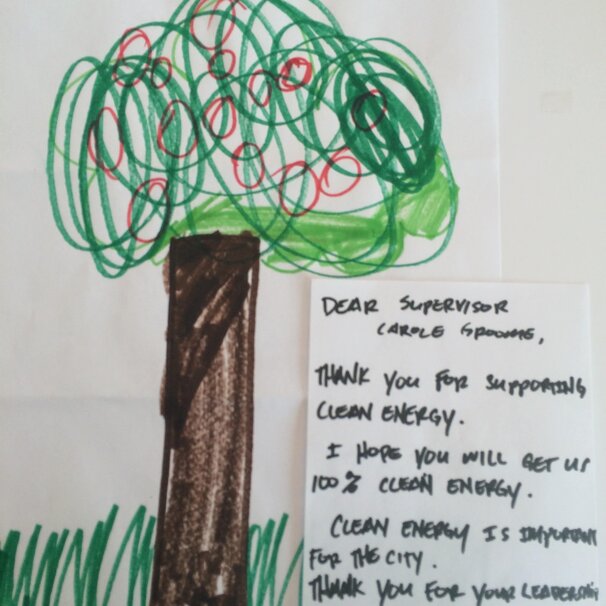 DEAR SUPERVISOR
CAROLE GROOME,
THANK YOU FOR SUPPORTING
CLEAN ENERGY.
I HOPE YOU WILL GET US
100% CLEAN ENERGY.
CLEAN ENERGY IS IMPORTAN
FOR THE CITY.
THANK YOU FOR YOUR LEADERSHIP